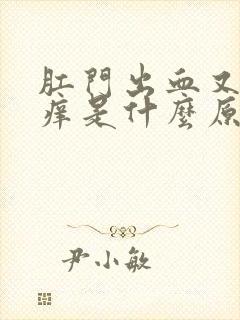 肛門出血又
痒是什麼原
尹小敏